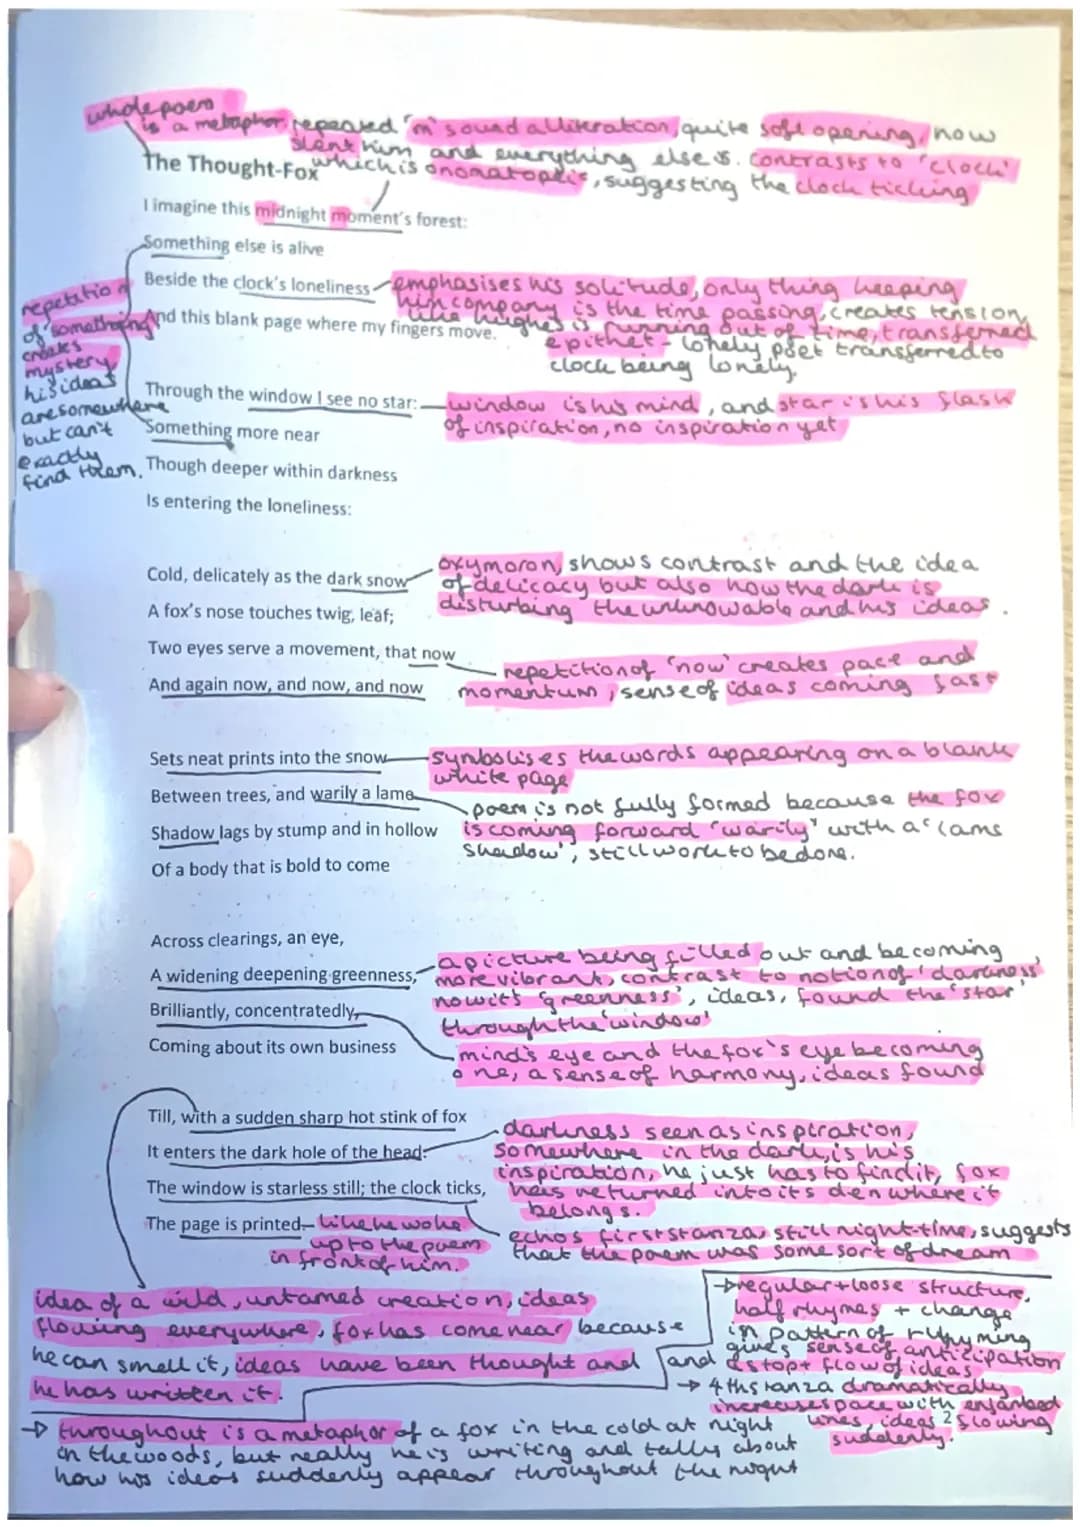 whole poem
is a metaphor. repeated 'm' sound alliteration, quite soft opening, how
silent him and everything else is. contrasts to 'clock'
The Thought-Fox which is onomatopeic, suggesting the clock ticking
I imagine this midnight moment's forest:
Something else is alive
Beside the clock's loneliness
emphasises his solitude, only thing keeping
him company is the time passing, creates tension
like hughes is running out of time, transferred
epithet - lonely poet transferred to
clock being lonely.
And this blank page where my fingers move.
repetition
of 'something'
creates
mystery,
his ideas
are somewhere
but can't
exactly
find them.
Through the window I see no star:
window is his mind, and star is his flash
of inspiration, no inspiration yet
Something more near
Though deeper within darkness
Is entering the loneliness:
Cold, delicately as the dark snow
oxymoron, shows contrast and the idea
of delicacy but also how the dark is
disturbing the unknowable and his ideas.
A fox's nose touches twig, leaf;
Two eyes serve a movement, that now
And again now, and now, and now
repetition of 'now' creates pace and
momentum, sense of ideas coming fast
Sets neat prints into the snow
symbolises the words appearing on a blank
white page
Between trees, and warily a lame
Shadow lags by stump and in hollow
Of a body that is bold to come
poem is not fully formed because the fox
is coming forward 'warily' with a 'lame
shadow', still work to be done.
Across clearings, an eye,
A widening deepening greenness,
a picture being filled out and becoming
more vibrant, contrast to notion of 'darkness'
now it's 'greenness', ideas, found the 'star'
through the 'window'
Brilliantly, concentratedly,
Coming about its own business
mind's eye and the fox's eye becoming
one, a sense of harmony, ideas found
Till, with a sudden sharp hot stink of fox
It enters the dark hole of the head:
darkness seen as inspiration,
somewhere in the dark, is his
inspiration, he just has to find it, fox
has returned into its den where it
belongs.
The window is starless still; the clock ticks,
The page is printed
like he woke
up to the poem
in front of him.
echos first stanza, still night-time, suggests
that the poem was some sort of dream
idea of a wild, untamed creation, ideas
flowing everywhere, fox has come near because
he can smell it, ideas have been thought and
he has written it.
→ regular + loose structure,
half rhymes + change
in pattern of rhyming
gives sense of anticipation
and a stop + flow of ideas
→ 4th stanza dramatically
increases pace with enjambed
lines, ideas flowing
suddenly.
→ throughout is a metaphor of a fox in the cold at night
in the woods, but really he is writing and talks about
how his ideas suddenly appear throughout the night